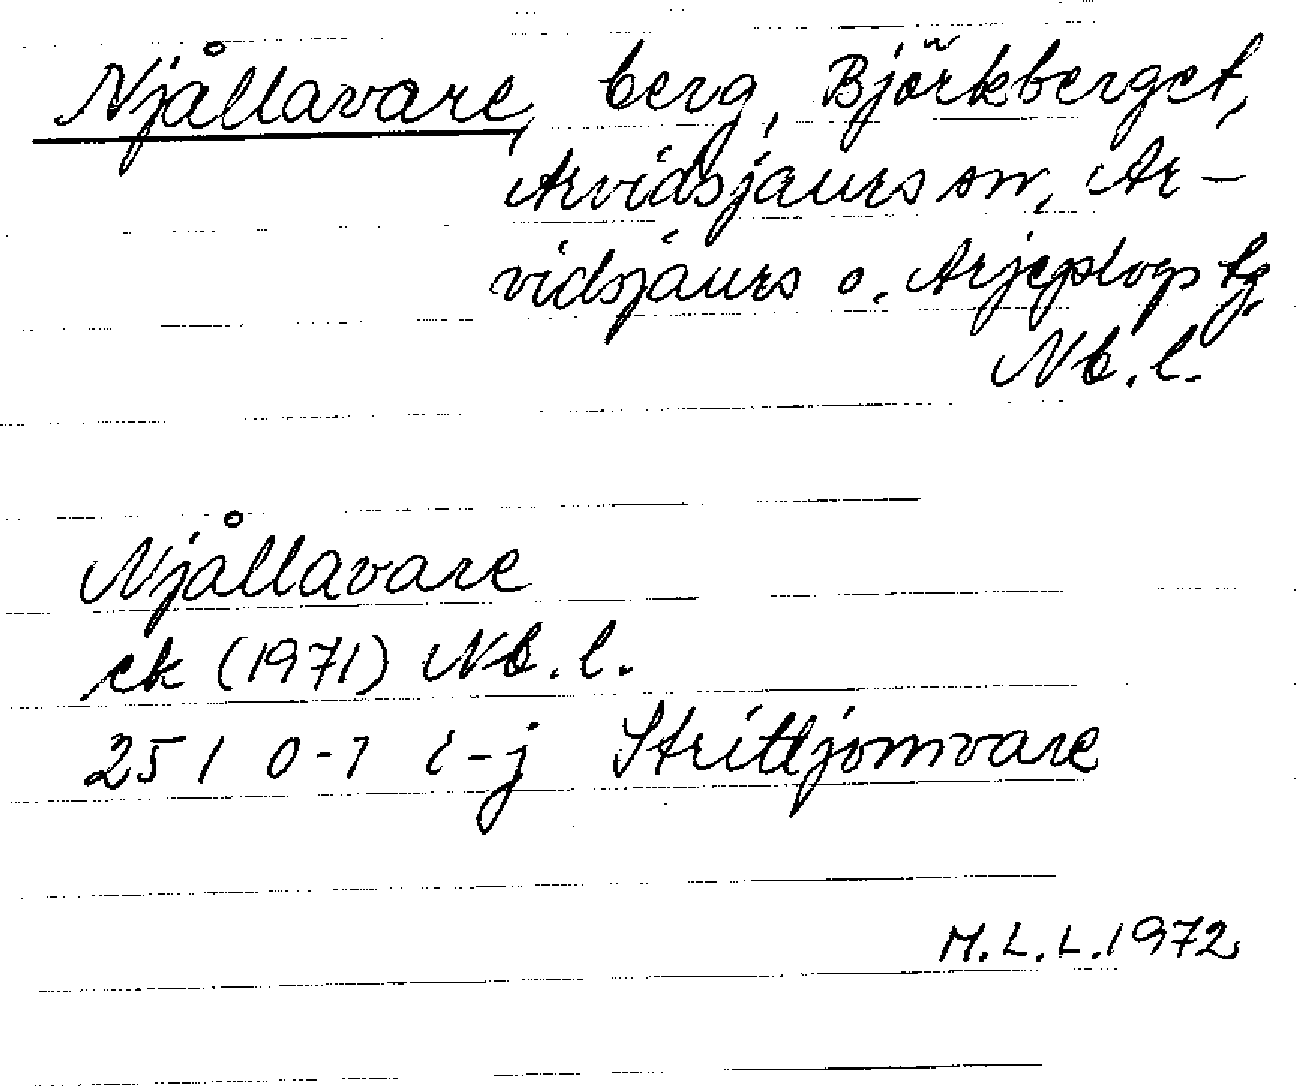 Njållavare, berg, Björkberget,
Arvidsjaurs sn, Ar-
vidsjaurs o. Arjeplogs tg
Nb. l.
Njållavare
ek (1971) Nb. l.
25 I 0-1 i-j Strittjomvare
M.L.L. 1972